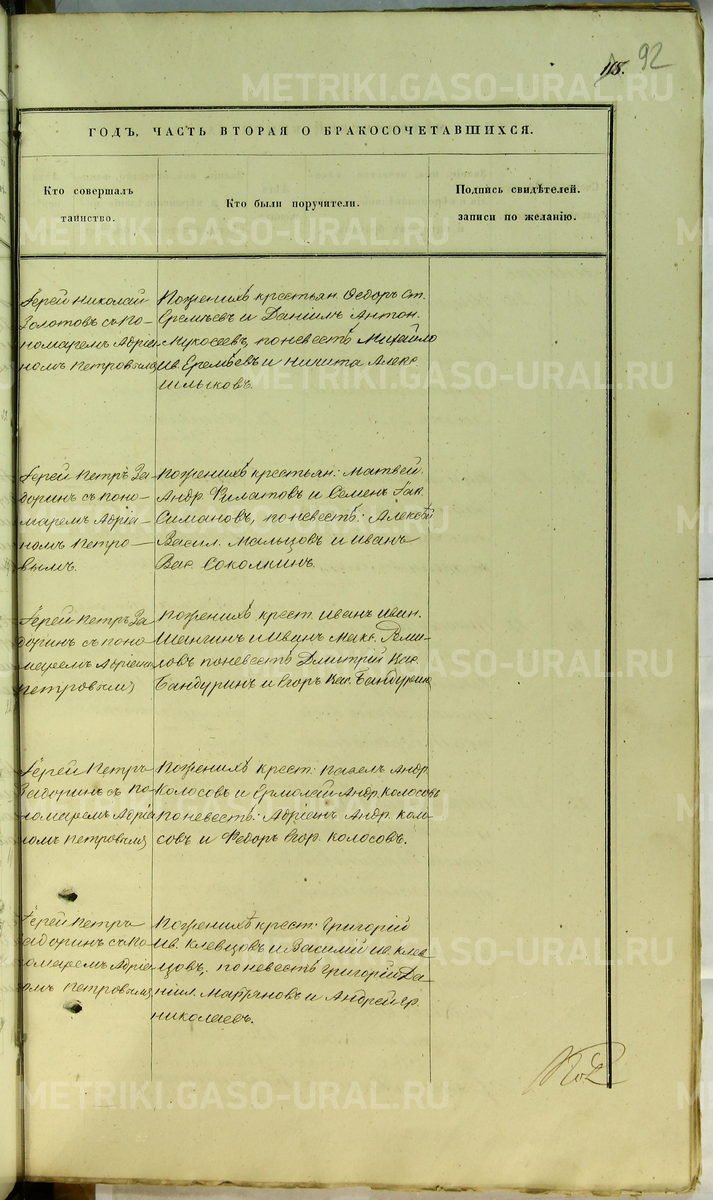 118. 92
ГОДЪ, ЧАСТЬ ВТОРАЯ О БРАКОСОЧЕТАВШИХСЯ.
Кто совершалъ
таинство.
Кто были поручители.
Подпись свидѣтелей.
записи по желанію.
Іерей Николай
Золотовъ съ По-
номаремъ Адріа-
номъ Петровымъ
По женихѣ крестьян. Ѳедоръ Ст.
Еремѣевъ и Даніилъ Антон.
Мукосеевъ, по невестѣ Михайло
Ив. Еремѣевъ и Никита Алекс.
Шлыковъ.
Іерей Петръ За-
доринъ съ поно-
маремъ Адріа-
номъ Петро-
вымъ.
По женихѣ крестьян: Матвей
Андр. Филатовъ и Семенъ Іак.
Симановъ, по невестѣ: Алексѣй
Васил. Мальцовъ и Иванъ
Вас. Соколкинъ.
Іерей Петръ За
доринъ съ поно-
маремъ Адріаном
Петровым
По женихѣ крест. Иванъ Иван.
Шангинъ и Иванъ Макс.
ловъ по невестѣ Дмитрій Кас.
Бандуринъ и Егоръ Кас. Бандурин
Іерей Петръ
Задоринъ съ по
номаремъ Адріа
номъ Петровым
По женихѣ крест: Павелъ Андр.
Колосовъ и Ермолай Андр. Колосовъ
по невестѣ: Адріанъ Андр. Коло-
совъ и Ѳедоръ Егор. Колосовъ.
Іерей Петръ
Задоринъ съ по-
номаремъ Адріа
номъ Петровым
По женихѣ крест: Григорій
Ив. Клевцовъ и Василій Ив. Клев-
цовъ, по невестѣ Григорій Да-
ніил. Мартяновъ и Андрей Гр.
Николаевъ.
METRIKI.GASO-URAL.RU
METRIKI.GASO-URAL.RU
METRIKI.GASO-URAL.RU
METRIKI.GASO-URAL.RU
METRIKI.GASO-URAL.RU
METRIKI.GASO-URAL.RU
METRIKI.GASO-URAL.RU
METRIKI.GASO-URAL.RU